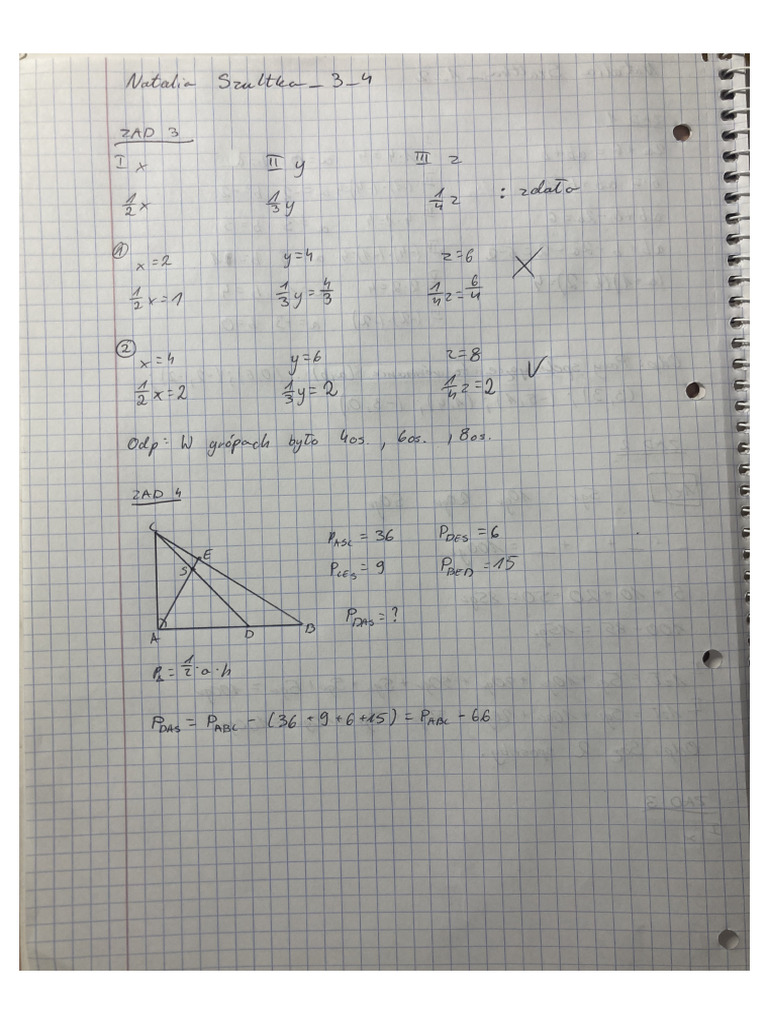 Natalia Szultka_3_4
ZAD 3
I x II y III z
1/2x 1/3y 1/4z : zdało
① x=2 y=4 z=6
1/2x=1 1/3y=4/3 1/4z=6/4
② x=4 y=6 z=8
1/2x=2 1/3y=2 1/4z=2
Odp: W grópach było 4os., 6os., 8os.
ZAD 4
C
E
S
A D B
P_ASC = 36 P_DES = 6
P_CES = 9 P_BED = 15
P_DAS = ?
P_Δ = 1/2·a·h
P_DAS = P_ABC - (36+9+6+15) = P_ABC - 66